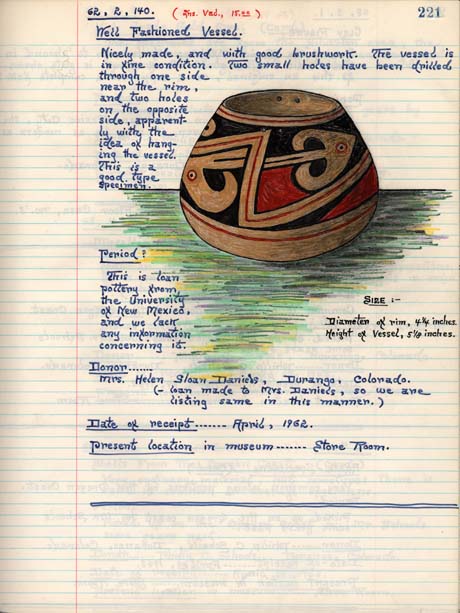 62, 2, 140. (Ins. Val., 15.00) 221
Well Fashioned Vessel.
Nicely made, and with good brushwork. The vessel is
in fine condition. Two small holes have been drilled
through one side
near the rim,
and two holes
on the opposite
side, apparent-
ly with the
idea of hang-
ing the vessel.
This is a
good type
specimen.
Period?
This is loan
pottery from
the University
of New Mexico,
and we lack
any information
concerning it.
Size :-
Diameter of rim, 4¼ inches.
Height of Vessel, 5⅛ inches.
Donor......
Mrs. Helen Sloan Daniels, Durango, Colorado.
(- loan made to Mrs. Daniels, so we are
listing same in this manner.)
Date of receipt------- April, 1962.
Present location in museum------- Store Room.